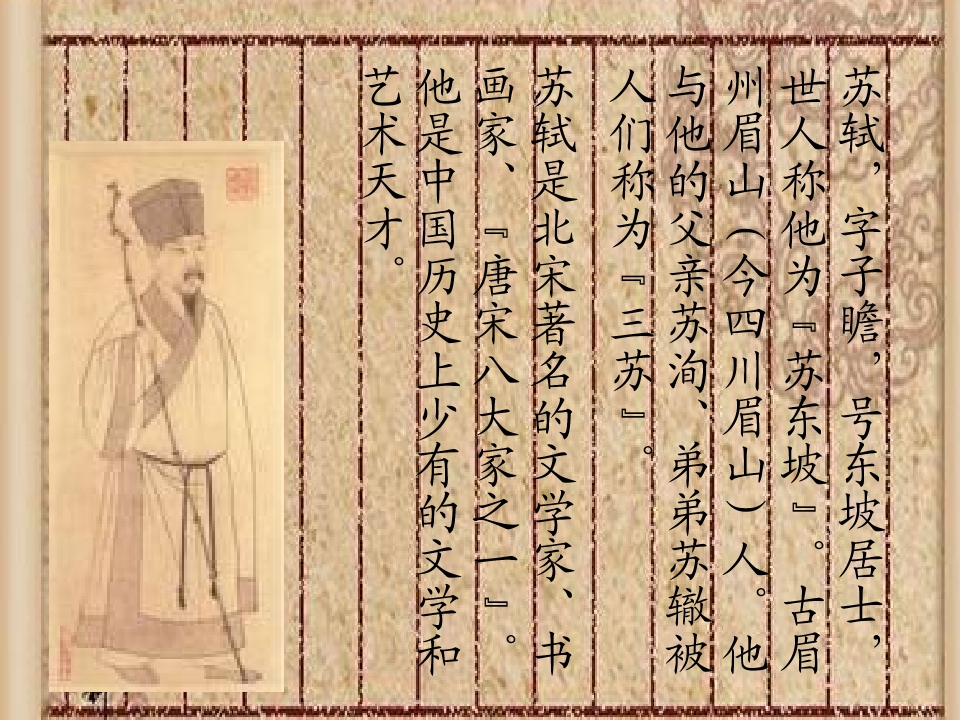 苏轼，字子瞻，号东坡居士，
世人称他为『苏东坡』。古眉
州眉山（今四川眉山）人。他
与他的父亲苏洵、弟弟苏辙被
人们称为『三苏』。
苏轼是北宋著名的文学家、书
画家、『唐宋八大家之一』。
他是中国历史上少有的文学和
艺术天才。